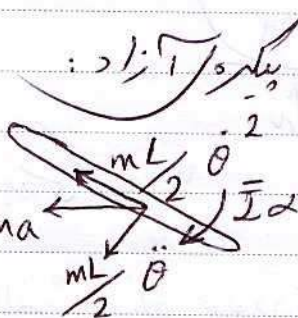 پیکره آزاد :
mL/2 θ̇²
ma
Īα
mL/2 θ̈